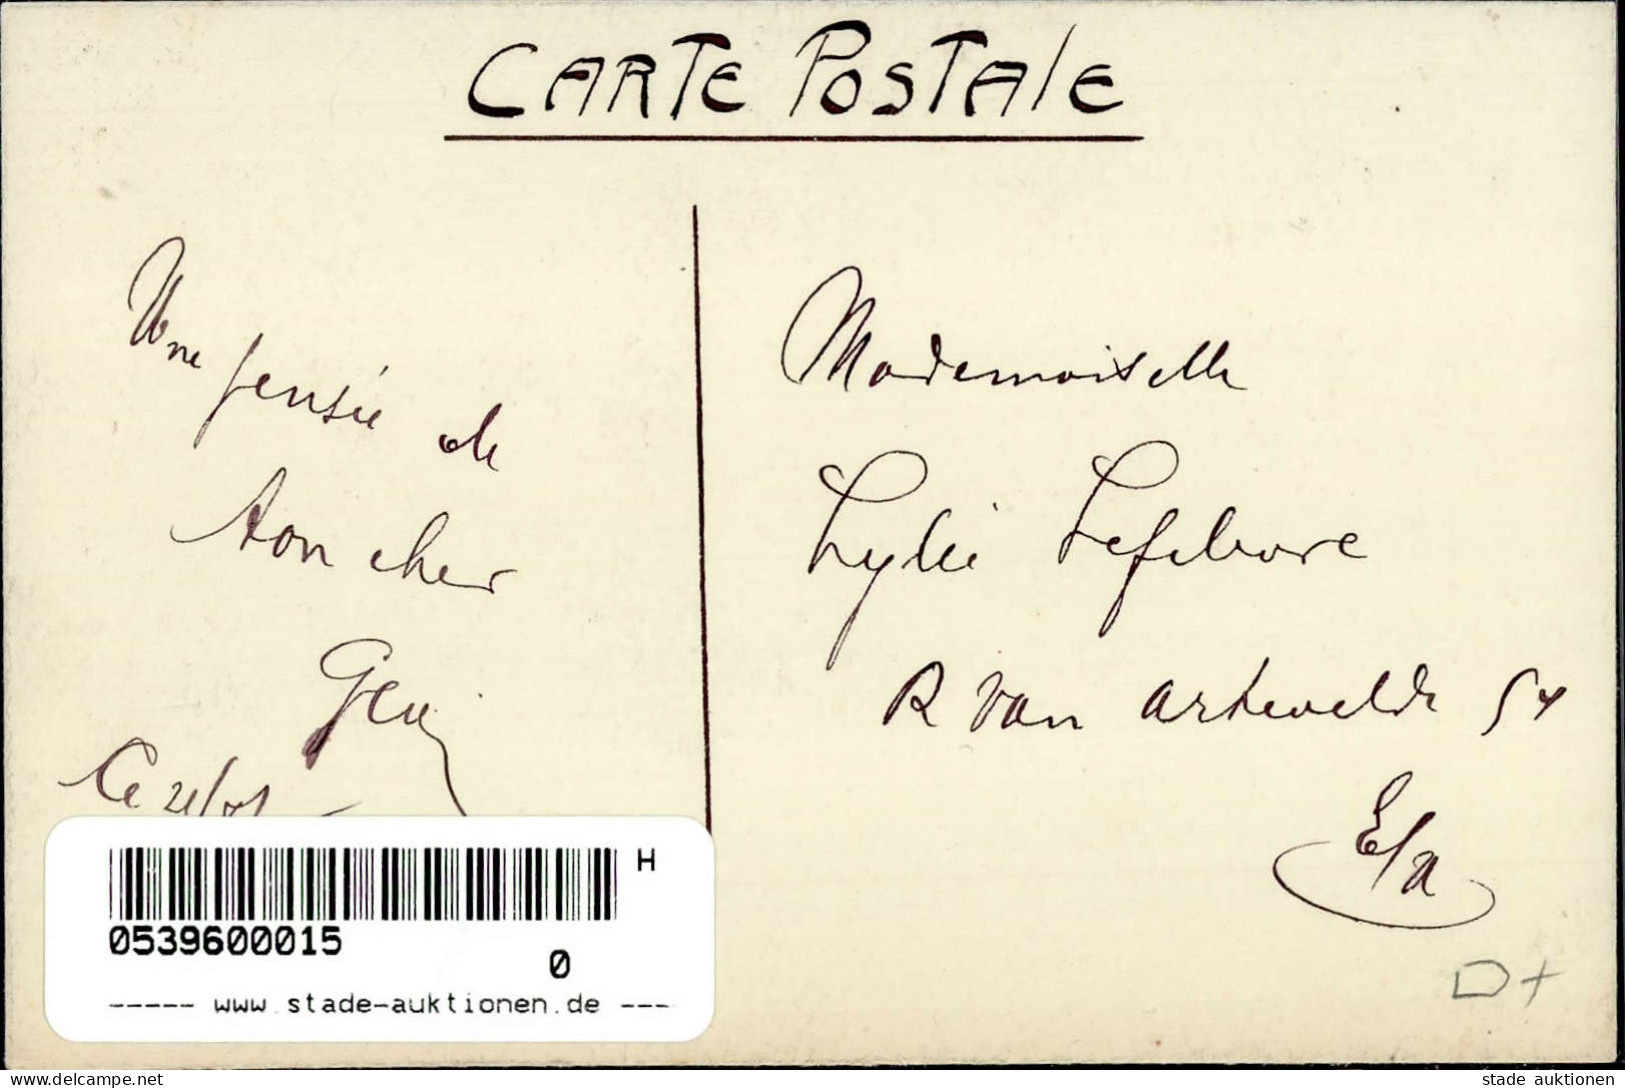 CARTE POSTALE
Une pensée de
ton cher
Ce 21/
Mademoiselle
Lylie Lefebvre
R Van Artevelde 54
E/a
D+
H
0539600015
0
----- www.stade-auktionen.de ---
picclick.delcampe.net
stade auktionen